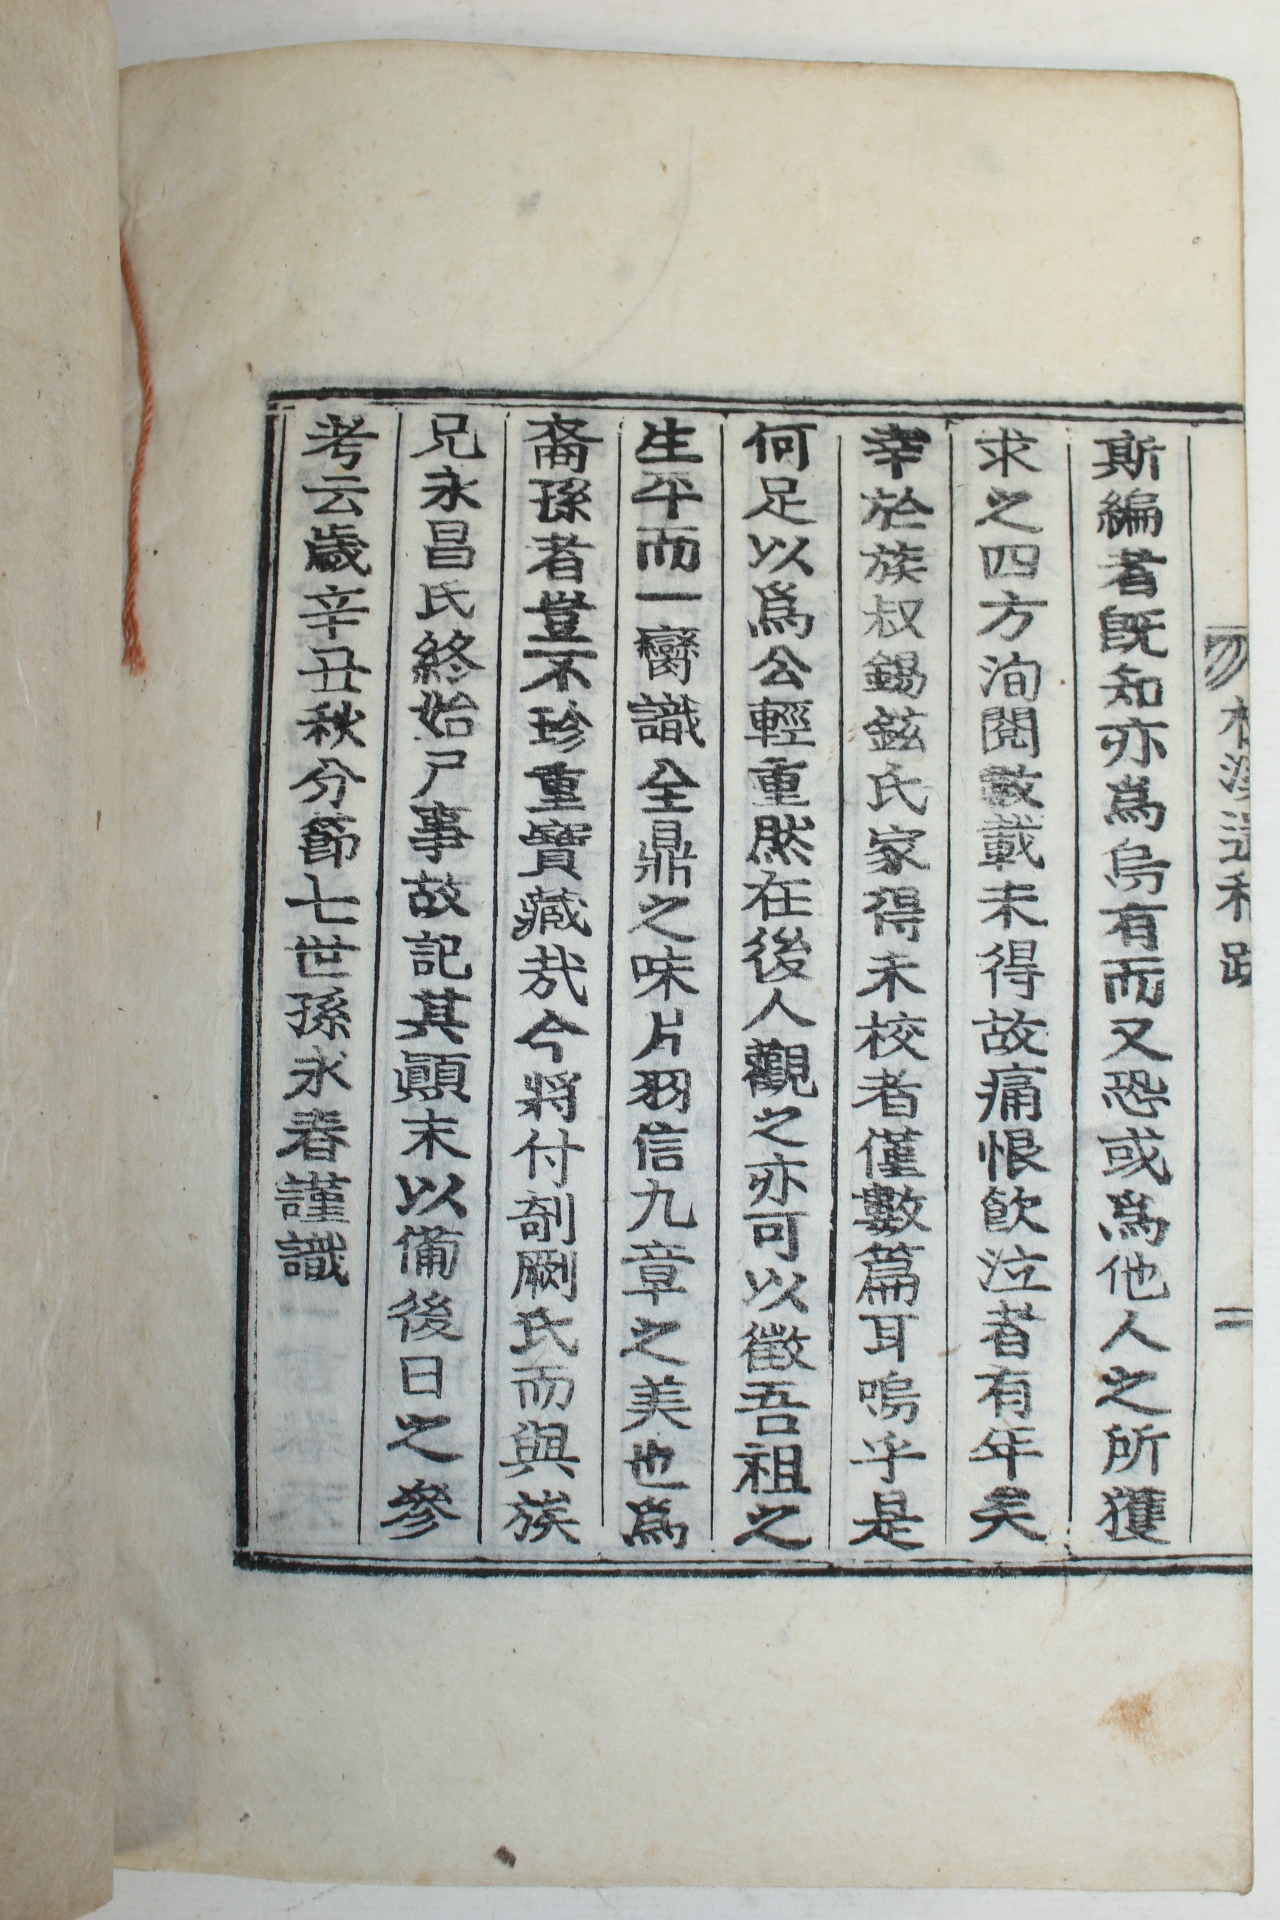 斯編者旣知亦爲烏有而又恐或爲他人之所獲
求之四方洵閱數載未得故痛恨飮泣者有年矣
幸於族叔錫鉉氏家得未校者僅數篇耳嗚乎是
何足以爲公輕重然在後人觀之亦可以徵吾祖之
生平而一臠識全鼎之味片羽信九章之美也爲
裔孫者豈不珍重寶藏哉今將付剞劂氏而與族
兄永昌氏終始尸事故記其顚末以備後日之參
考云歲辛丑秋分節七世孫永春謹識
溪遺稿跋
二